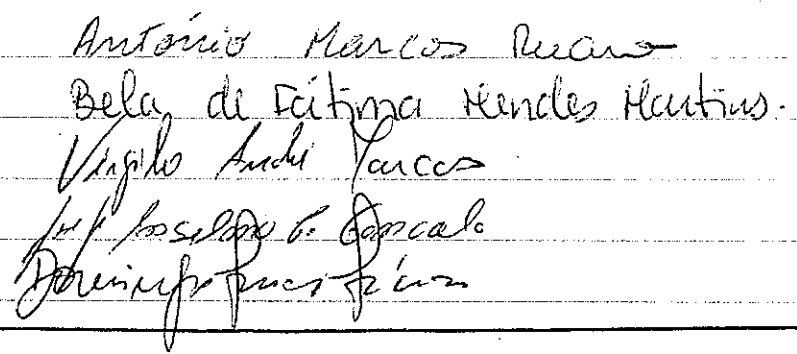 António Marcos Ruano
Bela de Fátima Mendes Martins.
Virgílio André Marcos
José Anselmo G. Gonçalo
Domingos